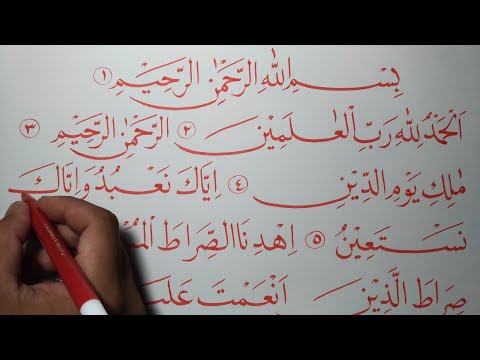 بِسْمِ اللهِ الرَّحْمٰنِ الرَّحِيْمِ ١
اَلْحَمْدُ لِلهِ رَبِّ الْعٰلَمِيْنَ ٢ الرَّحْمٰنِ الرَّحِيْمِ ٣
مٰلِكِ يَوْمِ الدِّيْنِ ٤ اِيَّاكَ نَعْبُدُ وَاِيَّاكَ
نَسْتَعِيْنُ ٥ اِهْدِنَا الصِّرَاطَ
صِرَاطَ الَّذِيْنَ اَنْعَمْتَ